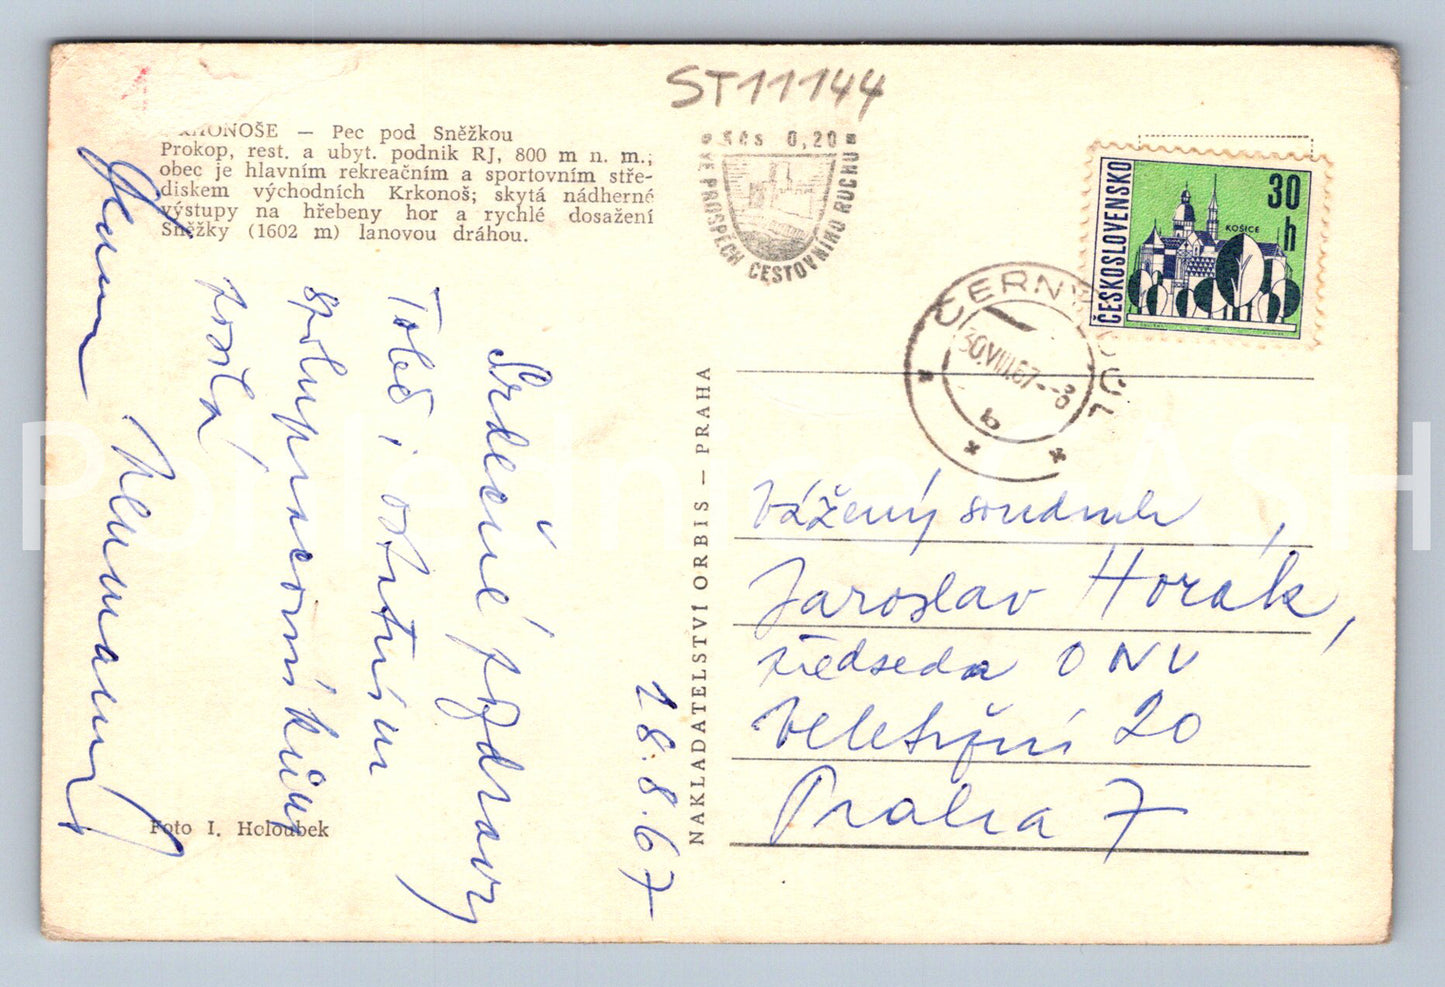 ST11144
KRKONOŠE — Pec pod Sněžkou
Prokop, rest. a ubyt. podnik RJ, 800 m n. m.;
obec je hlavním rekreačním a sportovním stře-
diskem východních Krkonoš; skytá nádherné
výstupy na hřebeny hor a rychlé dosažení
Sněžky (1602 m) lanovou dráhou.
Kčs 0,20
VE PROSPĚCH CESTOVNÍHO RUCHU
ČESKOSLOVENSKO
30 h
KOŠICE
ČERNÝ DŮL
30.VIII.67--8
b
28.8.67
Srdečné pozdravy
Tobě i ostatním
spolupracovníkům
Neumann
NAKLADATELSTVÍ ORBIS — PRAHA
Vážený soudruh
Jaroslav Horák,
předseda ONV
Veletržní 20
Praha 7
Foto I. Holoubek
Pohlednice FLASH